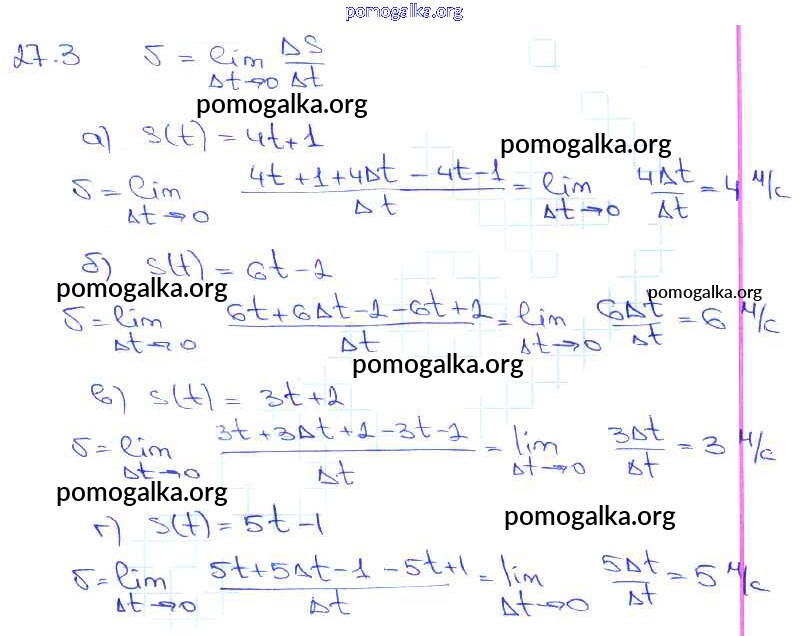 pomogalka.org
27.3 υ = lim Δt→0 ΔS/Δt
pomogalka.org
а) s(t) = 4t+1
pomogalka.org
υ = lim Δt→0 (4t+1+4Δt-4t-1)/Δt = lim Δt→0 4Δt/Δt = 4 м/с
б) s(t) = 6t-2
pomogalka.org
pomogalka.org
υ = lim Δt→0 (6t+6Δt-2-6t+2)/Δt = lim Δt→0 6Δt/Δt = 6 м/с
pomogalka.org
в) s(t) = 3t+2
υ = lim Δt→0 (3t+3Δt+2-3t-2)/Δt = lim Δt→0 3Δt/Δt = 3 м/с
pomogalka.org
г) s(t) = 5t-1
pomogalka.org
υ = lim Δt→0 (5t+5Δt-1-5t+1)/Δt = lim Δt→0 5Δt/Δt = 5 м/с